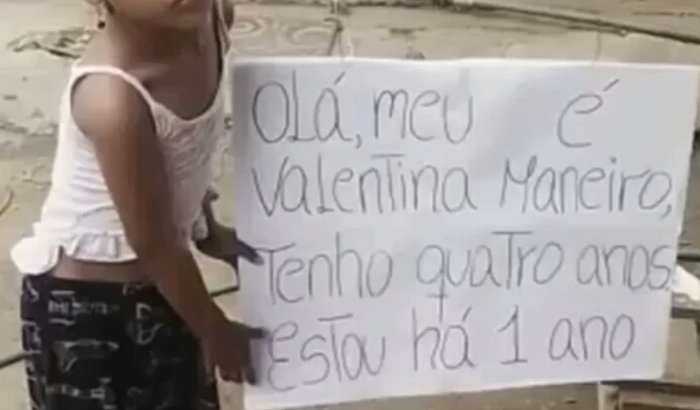 Olá, meu é
Valentina Maneiro,
Tenho quatro anos.
Estou há 1 ano